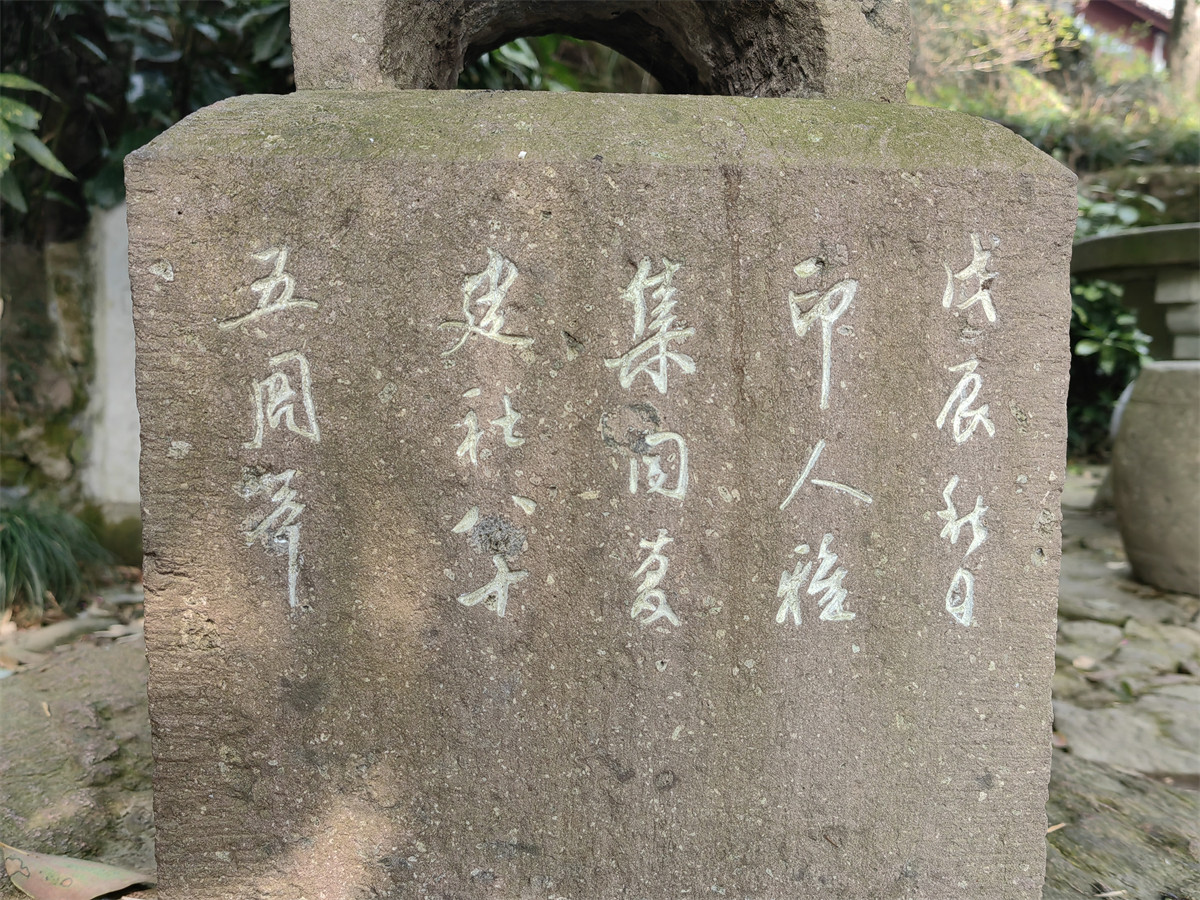 戊辰秋日
印人雅
集同慶
建社八十
五周年